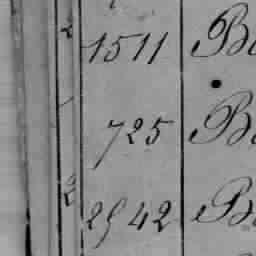 2 1511 B
725 B
2 2942 B